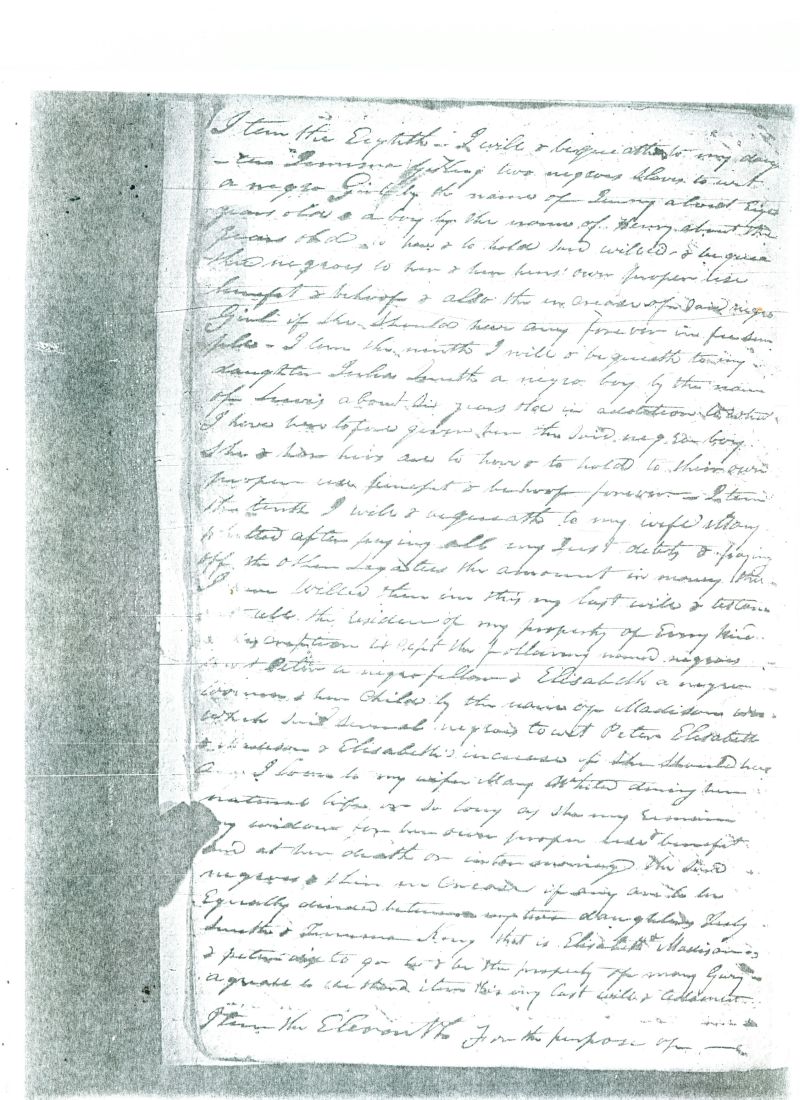 Item the Eighth - I will & bequeath to my daug
-ter King two negroes slaves to wit
a negro Girl by the name of Jenny about Eight
years old & a boy by the name of Henry about
years old to have & to hold said willed & bequea
the negroes to her & her heirs own proper use
benefit & behoof & also the increase of said negro
Girl if she should hear any forever in fee sim
ple - Item the ninth I will & bequeath to my
daughter Smith a negro boy by the name
of Lewis about Six years old in addition to what
I have heretofore given her the said negro boy
she & her heirs are to have & to hold to their own
proper use benefit & behoof forever - Item
the tenth I will & bequeath to my wife Mary
after paying all my Just debts & paying
off the other Legatees the amount in money
I have willed them in this my last will & testam
all the residue of my property of Every kind
Exception Except the following named negroes
to wit Peter a negro fellow & Elisabeth a negro
woman & her Child by the name of Madison
which said several negroes to wit Peter Elisabeth
& Madison & Elisabeth's increase if She Should have
any I loan to my wife Mary during her
natural life or so long as she may Remain
my widow for her own proper use & benefit
and at her death or intermarriage the said
negroes & their increase if any are to be
Equally divided between my two daughters
Smith & King that is Elisabeth & Madison
& peter is to go to & be the property of my
agreable to the item this my last will &
Item the Eleventh For the purpose of